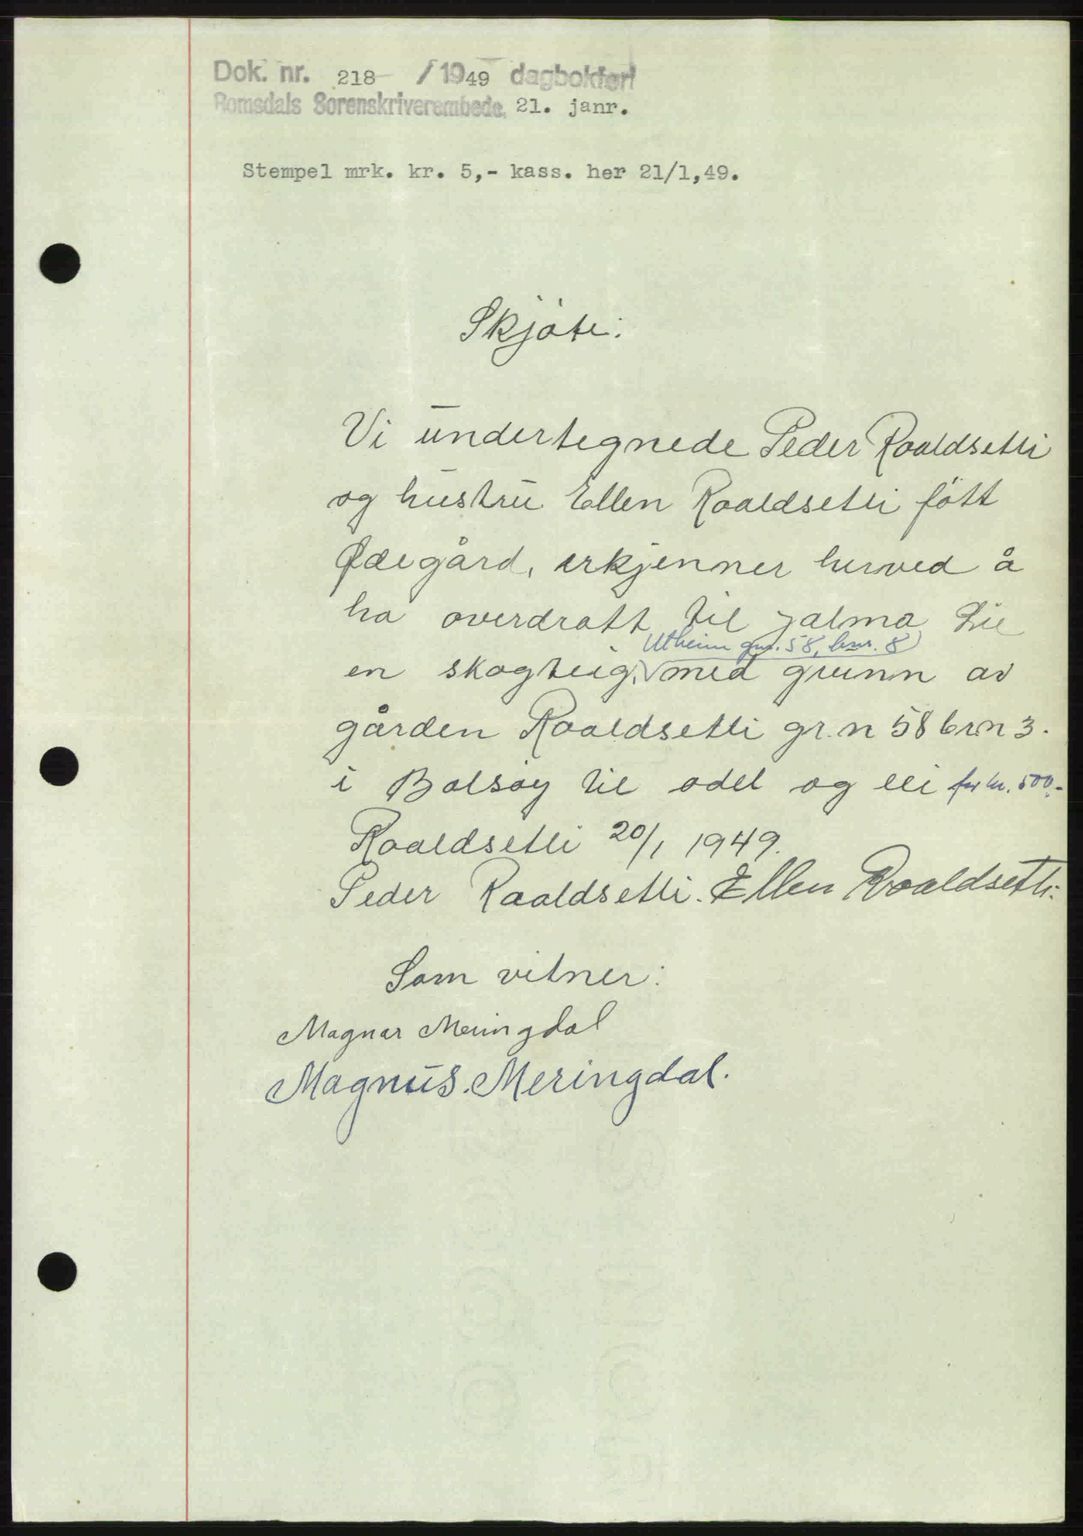 Dok. nr. 218 / 1949 dagbokført
Romsdals Sorenskriverembede. 21. janr.
Stempel mrk. kr. 5,- kass. her 21/1,49.
Skjöte:
Vi undertegnede Peder Roaldsetli
og hustru Ellen Roaldsetli fött
Ødegård, erkjenner herved å
ha overdratt til Jalma Lie
Utheim gnr. 58, bnr. 8
en skogteig, med grunn av
gården Roaldsetli gr.n 58 brn 3.
i Bolsöy til odel og eie for kr. 500.-
Roaldsetli 20/1 1949.
Peder Roaldsetli. Ellen Roaldsetli.
Som vitner:
Magnar Meringdal
Magnus. Meringdal.